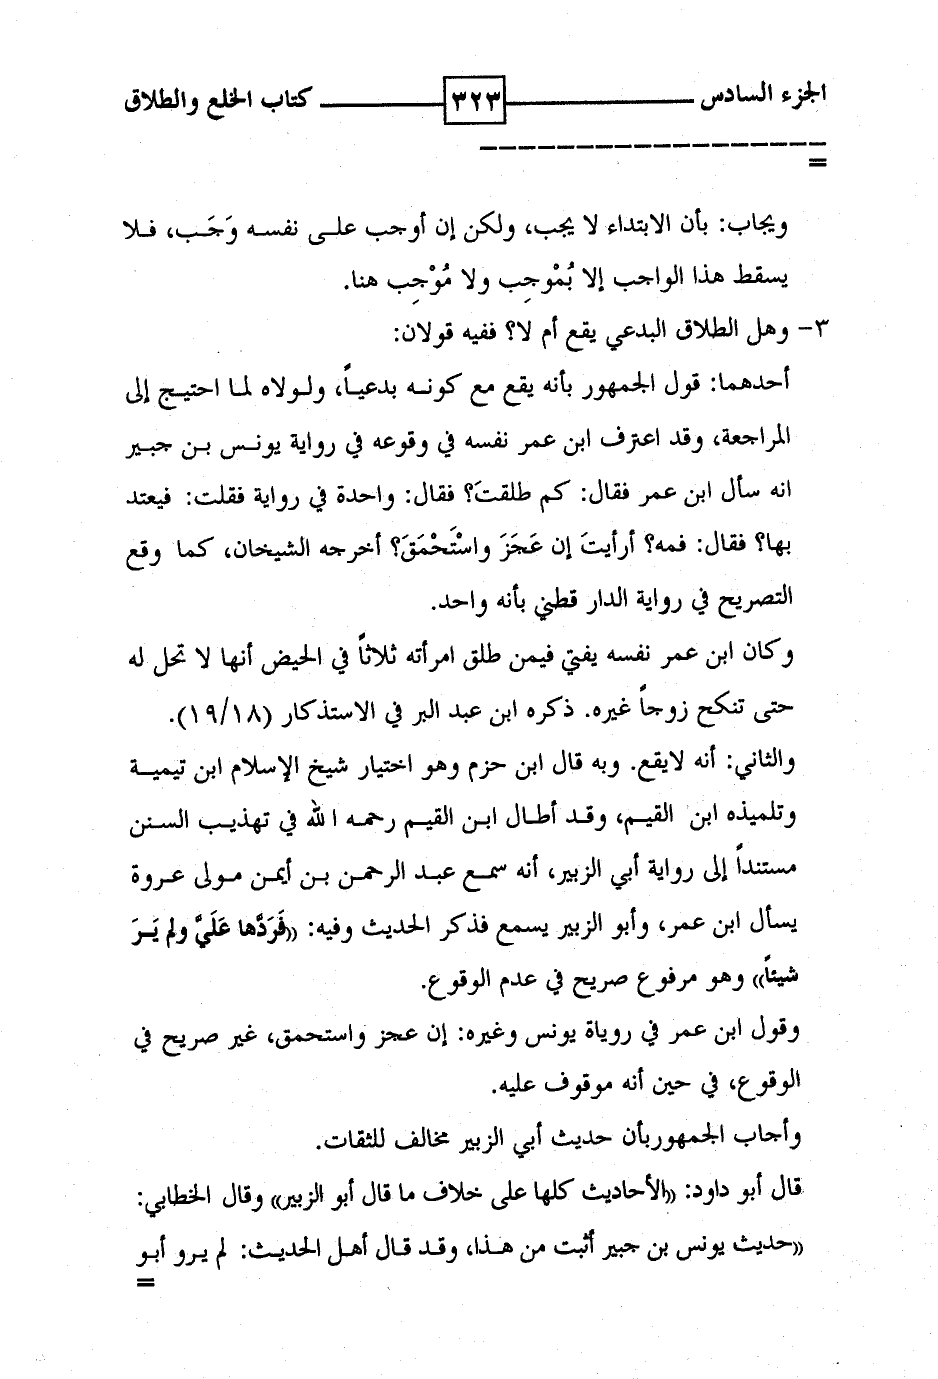 الجزء السادس ٣٢٣ كتاب الخلع والطلاق
=
ويجاب: بأن الابتداء لا يجب، ولكن إن أوجب على نفسه وَجَب، فلا
يسقط هذا الواجب إلا بُمْوجِب ولا مُوْجِب هنا.
٣- وهل الطلاق البدعي يقع أم لا؟ ففيه قولان:
أحدهما: قول الجمهور بأنه يقع مع كونه بدعياً، ولولاه لما احتيج إلى
المراجعة، وقد اعترف ابن عمر نفسه في وقوعه في رواية يونس بن جبير
انه سأل ابن عمر فقال: كم طلقتَ؟ فقال: واحدة في رواية فقلت: فيعتد
بها؟ فقال: فمه؟ أرأيتَ إن عَجَزَ واسْتَحْمَقَ؟ أخرجه الشيخان، كما وقع
التصريح في رواية الدار قطني بأنه واحد.
وكان ابن عمر نفسه يفتي فيمن طلق امرأته ثلاثاً في الحيض أنها لا تحل له
حتى تنكح زوجاً غيره. ذكره ابن عبد البر في الاستذكار (١٩/١٨).
والثاني: أنه لايقع. وبه قال ابن حزم وهو اختيار شيخ الإسلام ابن تيمية
وتلميذه ابن القيم، وقد أطال ابن القيم رحمه الله في تهذيب السنن
مستنداً إلى رواية أبي الزبير، أنه سمع عبد الرحمن بن أيمن مولى عروة
يسأل ابن عمر، وأبو الزبير يسمع فذكر الحديث وفيه: ((فَرَدَّها عَلَيَّ ولم يَرَ
شيئاً)) وهو مرفوع صريح في عدم الوقوع.
وقول ابن عمر في روياة يونس وغيره: إن عجز واستحمق، غير صريح في
الوقوع، في حين أنه موقوف عليه.
وأجاب الجمهوربأن حديث أبي الزبير مخالف للثقات.
قال أبو داود: ((الأحاديث كلها على خلاف ما قال أبو الزبير)) وقال الخطابي:
((حديث يونس بن جبير أثبت من هذا، وقد قال أهل الحديث: لم يرو أبو
=